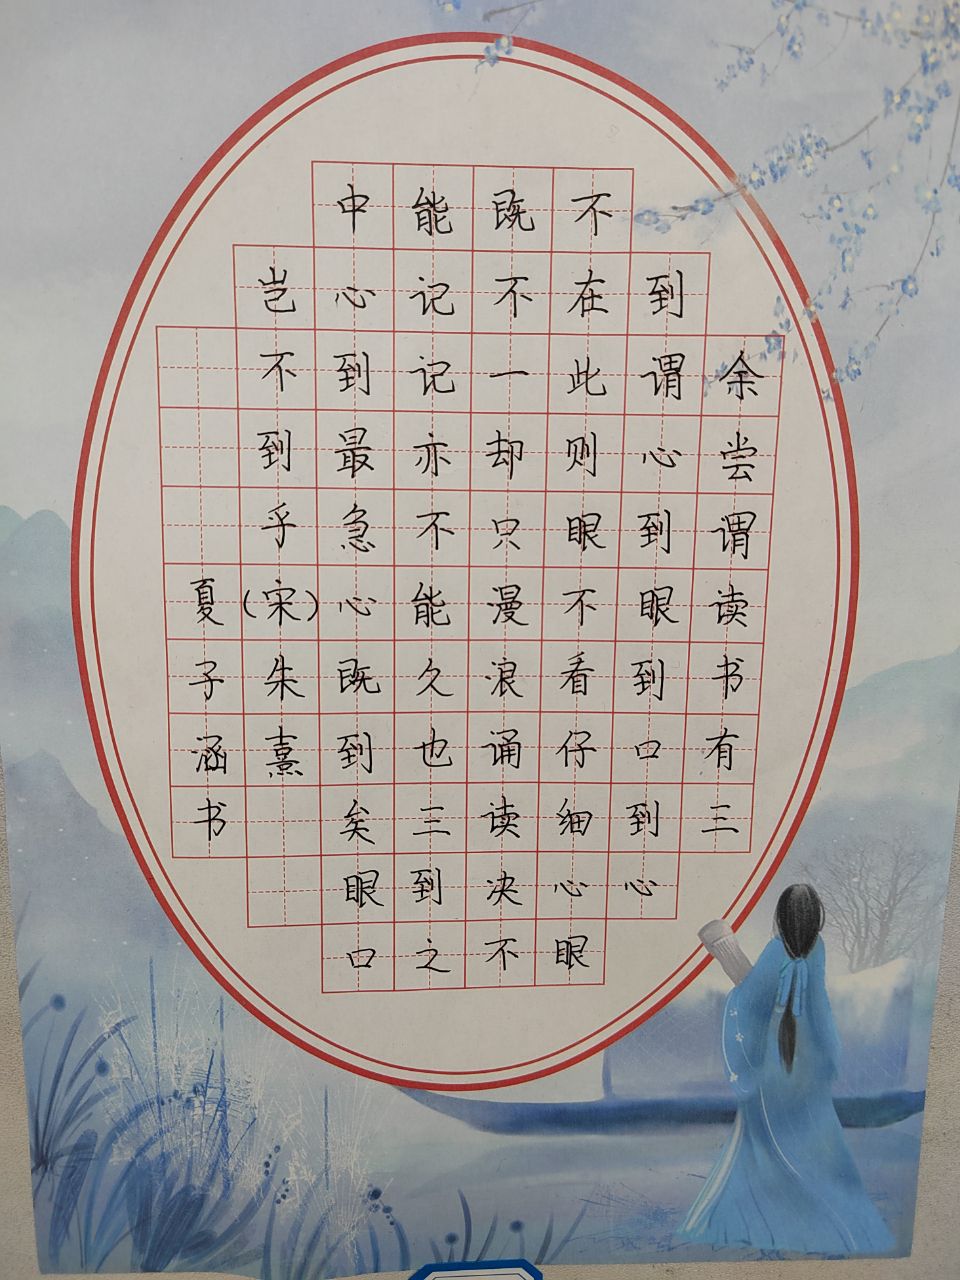 余尝谓读书有三
到谓心到眼到口到心
不在此则眼不看仔细心眼
既不一却只漫浪诵读决不
能记记亦不能久也三到之
中心到最急心既到矣眼口
岂不到乎(宋)朱熹
夏子涵书